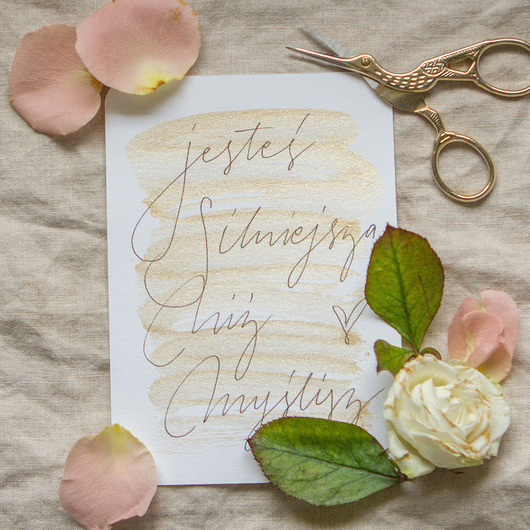 jesteś
silniejsza
niż
myślisz